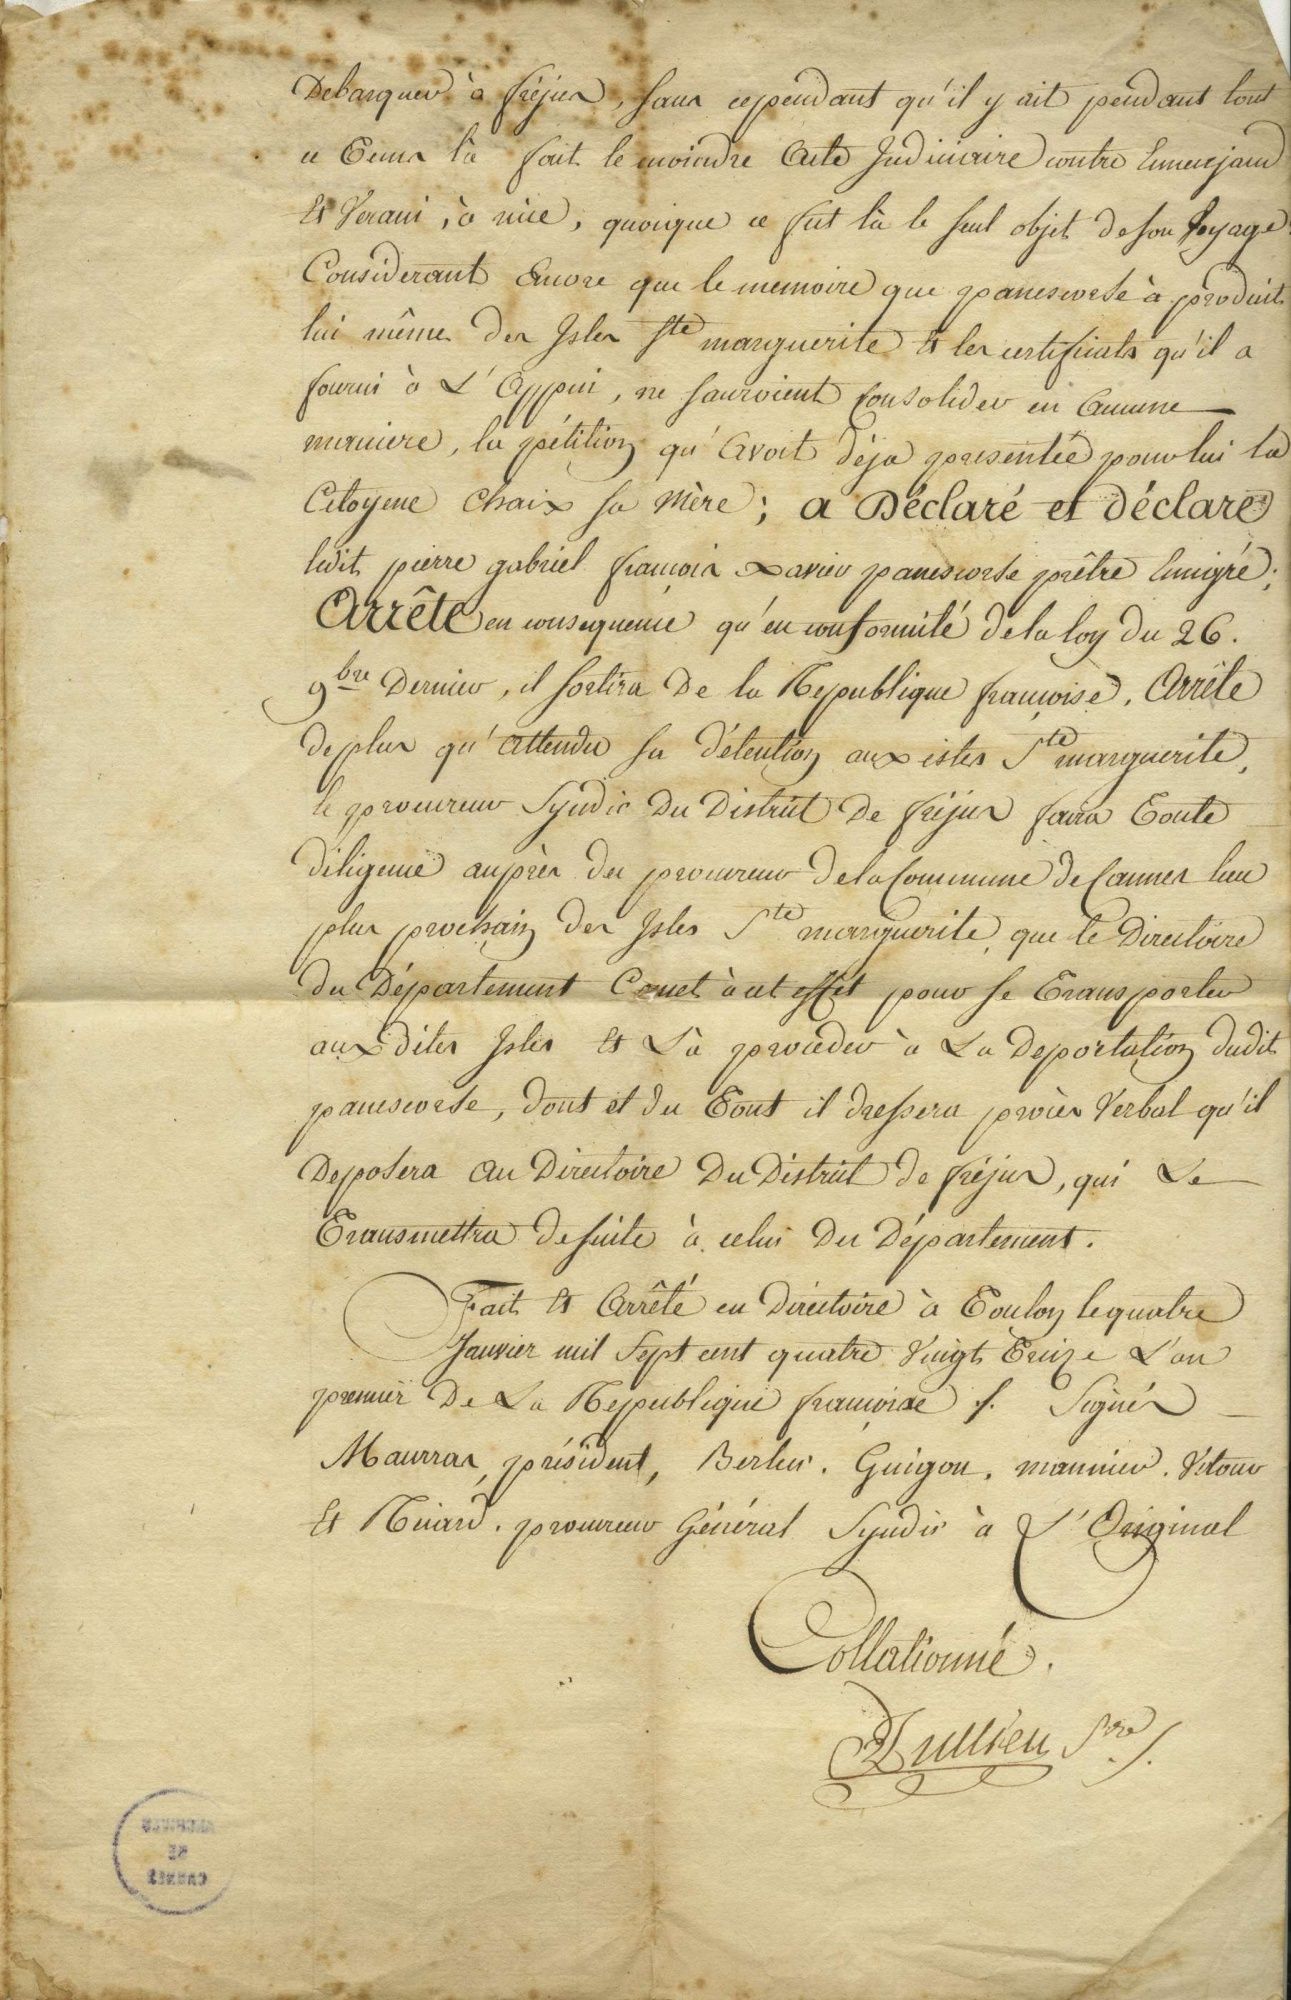 Debarquer à fréjus, sans cependant qu'il y ait pendant tout
ce Tems là fait le moindre Acte Judiciaire contre Emerejaud
Et Verani, à nice, quoique ce fut là le seul objet de son Voyage.
Considerant Encore que le memoire que panescorse à produit
lui même des Isles Ste marguerite Et les certificats qu'il a
fourni à L'Appui, ne sauroient Consolider en Aucune
maniere, la pétition qu'Avoit déja presentée pour lui la
Citoyene Chaix sa Mère; a Déclaré et déclare
ledit pierre gabriel françois xavier panescorse prêtre Emigré;
Arrête en consequence qu'en conformité de la loy du 26.
9bre Dernier, il sortira De la Republique françoise. Arrête
deplus qu'attendu sa détention aux isles Ste marguerite,
le procureur Syndic Du District De fréjus faira Toute
diligence auprès du procureur de la Commune de Cannes lieu
plus prochain des Isles Ste marguerite que le Directoire
du Département Comet à cet effet pour se Transporter
aux dites Isles Et Là proceder à La Deportation dudit
panescorse, dont et du Tout il dressera procès Verbal qu'il
Deposera au Directoire Du District de fréjus, qui Le
Transmettra de suite à celui Du Département.
Fait Et Arrêté en Directoire à Toulon le quatre
Janvier mil Sept cent quatre Vingt Treize L'an
premier De La Republique françoise /. Signés
Maurras, président, Berlus. Guigou. mannier. Vitour
Et Ricard. procureur Général Syndic à L'Original
Collationné.
Jullien Sre /.
ARCHIVES
DE
CANNES